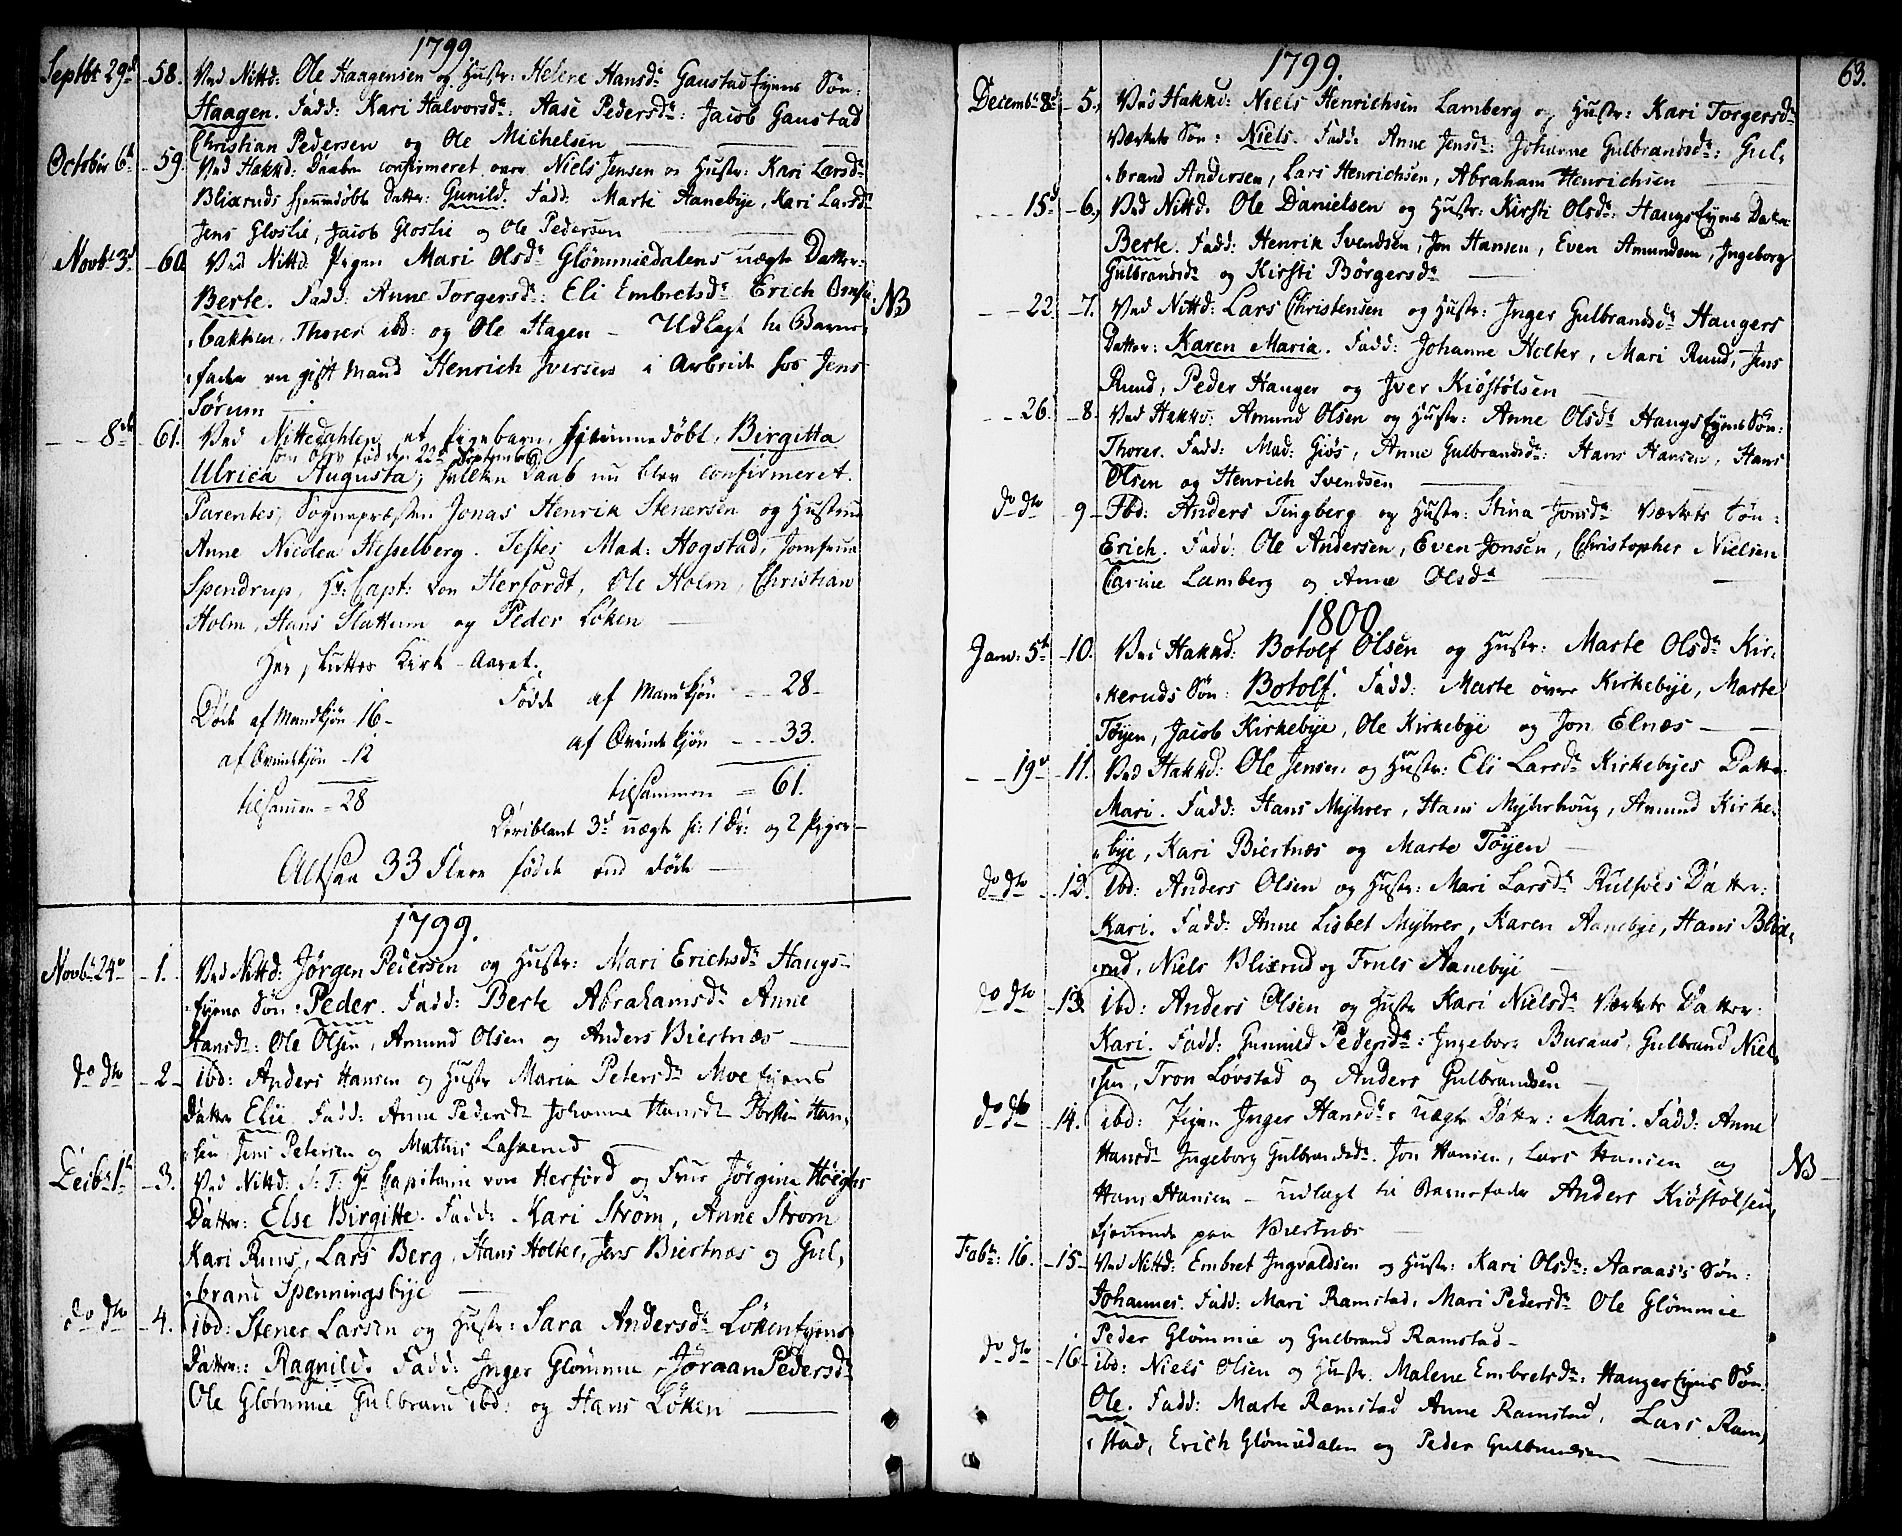 1799
Septbr 29de 58. Ved Nittd: Ole Haagensen og Hustr: Helene Hansdr Gaustad Eyens Søn:
Haagen. Fadd: Kari Halvorsdr: Aase Pedersdr: Jacob Gaustad
Christian Pedersen og Ole Michelsen
October 6te 59. Ved Hakkd: Daaben confirmeret over Niels Jensen og Hustr: Kari Larsdr
Blixruds hjemmedøbte Datter: Gunild. Fadd: Marti Aanebye, Kari Larsdr
Jens Gloslie, Jacob Gloslie og Ole Pedersen
Novbr 3d 60 Ved Nittd: Pigen Mari Olsdr Glømmiedalens uægte Datter:
Berte. Fadd: Anne Torgersdr: Eli Embretsdr Erich
bakken, Thorer ibd: og Ole Hagen – Udlagt til Barne- NB
fader en gift Mand Henrich Iversen i Arbeide hos Jens
Sørum
8de 61. Ved Nittedahlen et Pigebarn, hjemmedøbt, Birgitta
som blev fød den 22de September
Ulrica Augusta, hvilken Daab nu blev confirmeret.
Parentes, Sognepræsten Jonas Henrik Stenersen og Hustrue
Anne Nicolea Hesselberg. Testes Mad: Hogstad, Jomfrue
Spendrup, Hr: Capt: von Herfordt, Ole Holm, Christian
Holm, Hans Slattum og Peder Løken
Her sluttes Kirk-Aaret.
Døde af Mandkjøn 16 – Fødde af Mandkjøn – 28 –
af Qvindekjøn – 12 af Qvindekjøn – 33.
tilsammen – 28 tilsammen = 61.
Deriblant 3de uægte sc: 1 Dr: og 2 Piger –
Altsaa 33 Flere fødde end døde
1799.
Novbr 24de 1. Ved Nittd: Jørgen Pedersen og Hustr: Mari Erichsdr Haugs-
eyens Søn: Peder. Fadd: Berte Abrahamsdr Anne
Hansdr: Ole Olsen, Amund Olsen og Anders Biertnæs
do dto 2 ibd: Anders Hansen og Hustr Maria Petersdr Moe Eyens
Datter Elie Fadd: Anne Pedersdr Johanne Hansdr Torsten Han-
sen, Jens Petersen og Mathis Laskerud
Decbr 1te 3. Ved Nittd: S: T: Hr Capitaine von Herford og Frue Jørgine Høeghs
Datter: Else Birgitte. Fadd: Kari Strøm, Anne Strøm
Kari Ruus, Lars Berg, Hans Holter, Jens Biertnæs og Gul-
brand Spenningsbye
do dto 4. ibd: Stener Larsen og Hustr: Sara Andersdr Løkeneyens
Datter: Ragnild. Fadd: Inger Glømmie, Jøraan Pedersdr
Ole Glømmie Gulbrand ibd: og Hans Løken
63.
1799.
Decembr 8de 5. Ved Hakkd: Niels Henrichsen Lamberg og Hustr: Kari Torgersdr
Værkets Søn: Niels. Fadd: Anne Jensdr: Johanne Gulbrandsdr: Gul-
brand Andersen, Lars Henrichsen, Abraham Henrichsen
15d 6. Ved Nittd: Ole Danielsen og Hustr: Kirsti Olsdr: Haugs Eyens Datter
Berte. Fadd: Henrik Svendsen, Jon Hansen, Even Amundsen, Ingeborg
Gulbrandsdr og Kirsti Børgersdr
22. 7. Ved Nittd: Lars Christensen og Hustr: Inger Gulbrandsdr Haugers
Datter: Karen Maria. Fadd: Johanne Holter, Mari Ruud, Jens
Ruud, Peder Hauger og Iver Kiøstølsen
26. 8. Ved Hakkd: Amund Olsen og Hustr: Anne Olsdr Haugs Eyens Søn:
Thorer. Fadd: Mad: Giøs, Anne Gulbrandsdr: Hans Hansen, Hans
Olsen og Henrich Svendsen
do dto 9 Ibd: Anders Tingberg og Hustr: Stina Jonsdr Værkets Søn:
Erich. Fadd: Ole Andersen, Even Jonsen, Christopher Nielsen
Carine Lamberg og Anne Olsdr
1800
Janv: 5te 10. Ved Hakkd: Botolf Olsen og Hustr: Marte Olsdr Kir-
keruds Søn: Botolf. Fadd: Marte øvre Kirkebye, Marte
Tøyen, Jacob Kirkebye, Ole Kirkebye og Jon Elnæs
19de 11. Ved Hakkd: Ole Jensen og Hustr: Eli Larsdr Kirkebyes Datter
Mari. Fadd: Hans Myhrer, Hans Myhrhoug, Amund Kirke-
bye, Kari Biertnæs og Marte Tøyen
do dto 12. Ibd: Anders Olsen og Hustr: Mari Larsdr Datter:
Kari. Fadd: Anne Lisbet Myhrer, Karen Aanebye, Hans Blix-
rud, Niels Blixrud og Truls Aanebye
do dto 13. ibd: Anders Olsen og Hustr Kari Nielsdr Værkets Datter:
Kari. Fadd: Gunnild Pedersdr: Ingebor: Buraas, Gulbrand Niel-
sen, Tron Løvstad og Anders Gulbrandsen
do dto 14. ibd: Pigen Inger Hansdr: uægte Datter: Mari. Fadd: Anne
Hansdr Ingeborg Gulbrandsdr. Jon Hansen, Lars Hansen og NB
Hans Hansen – udlagt til Barnefader Anders Kiøstølsen,
tjenende paa Biertnæs
Febr: 16. 15 Ved Nittd: Embret Ingvaldsen og Hustr: Kari Olsdr: Aaraas's Søn:
Johannes. Fadd: Mari Ramstad, Mari Pedersdr Ole Glömmie
Peder Glömmie og Gulbrand Ramstad –
do dto 16 ibd: Niels Olsen og Hustr. Malene Embretsdr: Hauger Eyens Søn:
Ole. Fadd: Marte Ramstad Anne Ramstad, Lars Ram-
stad, Erich Glömmedalen og Peder Gulbrandsen